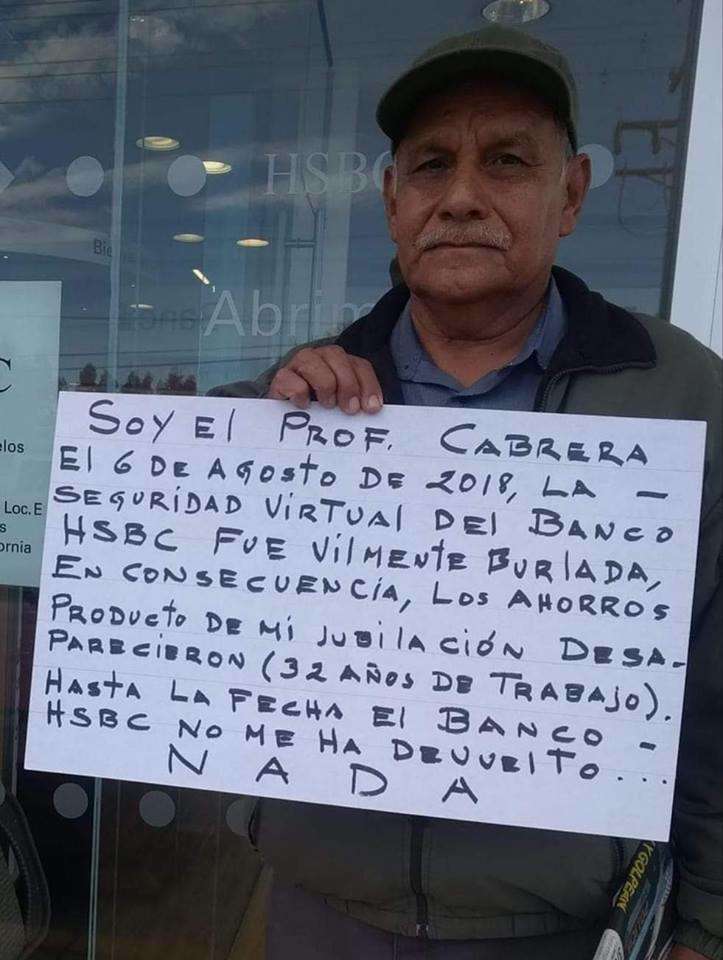 HSBC
Bie
Abrim
C
elos
Loc. E
s
ornia
SOY El PROF. CABRERA
El 6 DE AGOSTO DE 2018, LA -
SEGURIDAD VIRTUAL DEL BANCO
HSBC FUE VILMENTE BURLADA,
EN CONSECUENCÍA, LOS AHORROS
PRODUCTO DE MI JUBILACIÓN DESA-
PARECIERON (32 AÑOS DE TRABAJO).
HASTA LA FECHA El BANCO -
HSBC NO ME HA DEVUELTO...
NADA
Y GOLPEAN